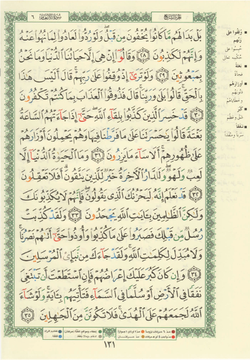 بَلْ بَدَا لَهُم مَّا كَانُوا۟ يُخْفُونَ مِن قَبْلُ ۖ وَلَوْ رُدُّوا۟ لَعَادُوا۟ لِمَا نُهُوا۟ عَنْهُ
وَإِنَّهُمْ لَكَـٰذِبُونَ ﴿٢٨﴾ وَقَالُوٓا۟ إِنْ هِىَ إِلَّا حَيَاتُنَا ٱلدُّنْيَا وَمَا نَحْنُ
بِمَبْعُوثِينَ ﴿٢٩﴾ وَلَوْ تَرَىٰٓ إِذْ وُقِفُوا۟ عَلَىٰ رَبِّهِمْ ۚ قَالَ أَلَيْسَ هَـٰذَا
بِٱلْحَقِّ ۚ قَالُوا۟ بَلَىٰ وَرَبِّنَا ۚ قَالَ فَذُوقُوا۟ ٱلْعَذَابَ بِمَا كُنتُمْ تَكْفُرُونَ
﴿٣٠﴾ قَدْ خَسِرَ ٱلَّذِينَ كَذَّبُوا۟ بِلِقَآءِ ٱللَّهِ ۖ حَتَّىٰٓ إِذَا جَآءَتْهُمُ ٱلسَّاعَةُ
بَغْتَةً قَالُوا۟ يَـٰحَسْرَتَنَا عَلَىٰ مَا فَرَّطْنَا فِيهَا وَهُمْ يَحْمِلُونَ أَوْزَارَهُمْ
عَلَىٰ ظُهُورِهِمْ ۚ أَلَا سَآءَ مَا يَزِرُونَ ﴿٣١﴾ وَمَا ٱلْحَيَوٰةُ ٱلدُّنْيَآ إِلَّا
لَعِبٌ وَلَهْوٌ ۖ وَلَلدَّارُ ٱلْـَٔاخِرَةُ خَيْرٌ لِّلَّذِينَ يَتَّقُونَ ۗ أَفَلَا تَعْقِلُونَ
﴿٣٢﴾ قَدْ نَعْلَمُ إِنَّهُۥ لَيَحْزُنُكَ ٱلَّذِى يَقُولُونَ ۖ فَإِنَّهُمْ لَا يُكَذِّبُونَكَ
وَلَـٰكِنَّ ٱلظَّـٰلِمِينَ بِـَٔايَـٰتِ ٱللَّهِ يَجْحَدُونَ ﴿٣٣﴾ وَلَقَدْ كُذِّبَتْ
رُسُلٌ مِّن قَبْلِكَ فَصَبَرُوا۟ عَلَىٰ مَا كُذِّبُوا۟ وَأُوذُوا۟ حَتَّىٰٓ أَتَىٰهُمْ نَصْرُنَا ۚ
وَلَا مُبَدِّلَ لِكَلِمَـٰتِ ٱللَّهِ ۚ وَلَقَدْ جَآءَكَ مِن نَّبَإِى۟ ٱلْمُرْسَلِينَ
﴿٣٤﴾ وَإِن كَانَ كَبُرَ عَلَيْكَ إِعْرَاضُهُمْ فَإِنِ ٱسْتَطَعْتَ أَن تَبْتَغِىَ
نَفَقًا فِى ٱلْأَرْضِ أَوْ سُلَّمًا فِى ٱلسَّمَآءِ فَتَأْتِيَهُم بِـَٔايَةٍ ۚ وَلَوْ شَآءَ
ٱللَّهُ لَجَمَعَهُمْ عَلَى ٱلْهُدَىٰ ۚ فَلَا تَكُونَنَّ مِنَ ٱلْجَـٰهِلِينَ ﴿٣٥﴾
١٣١